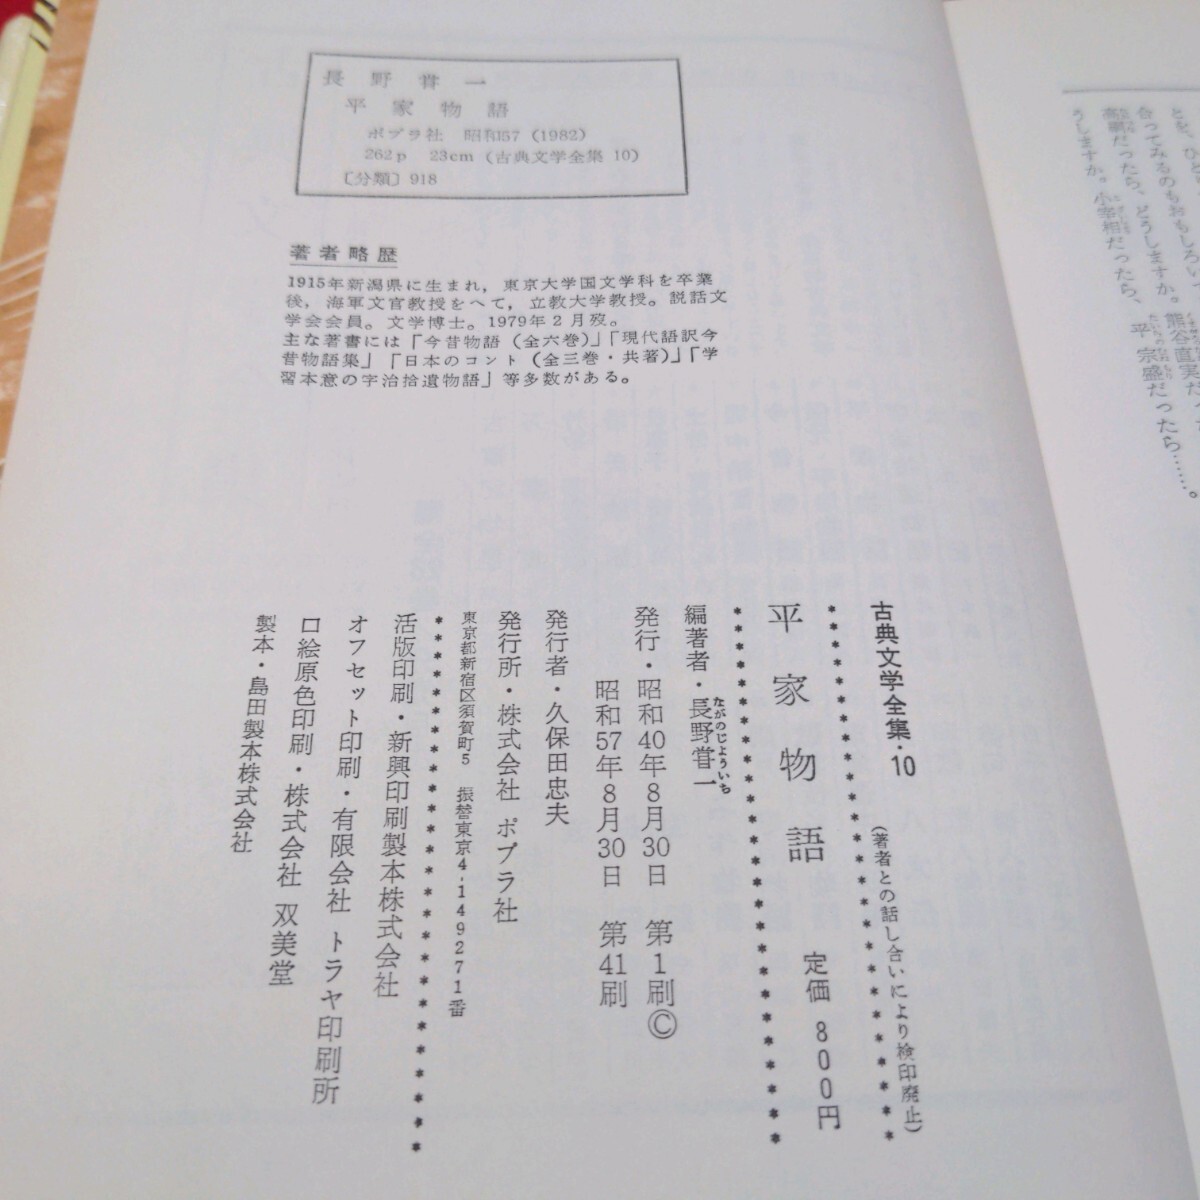 長野甞一
平家物語
ポプラ社 昭和57 (1982)
262p 23cm (古典文学全集 10)
〔分類〕918
著者略歴
1915年新潟県に生まれ，東京大学国文学科を卒業
後，海軍文官教授をへて，立教大学教授。説話文
学会会員。文学博士。1979年2月歿。
主な著書には「今昔物語（全六巻）」「現代語訳今
昔物語集」「日本のコント（全三巻・共著）」「学
習本意の宇治拾遺物語」等多数がある。
古典文学全集・10
（著者との話し合いにより検印廃止）
平家物語 定価 800円
編著者・長野甞一
ながのじよういち
発行・昭和40年8月30日 第1刷©
昭和57年8月30日 第41刷
発行者・久保田忠夫
発行所・株式会社 ポプラ社
東京都新宿区須賀町5 振替東京4-149271番
活版印刷・新興印刷製本株式会社
オフセット印刷・有限会社 トラヤ印刷所
口絵原色印刷・株式会社 双美堂
製本・島田製本株式会社
合ってみるのもおもしろい
だったら、どうしますか。熊谷直実だ
うしますか。小宰相だったら、平宗盛だったら……。